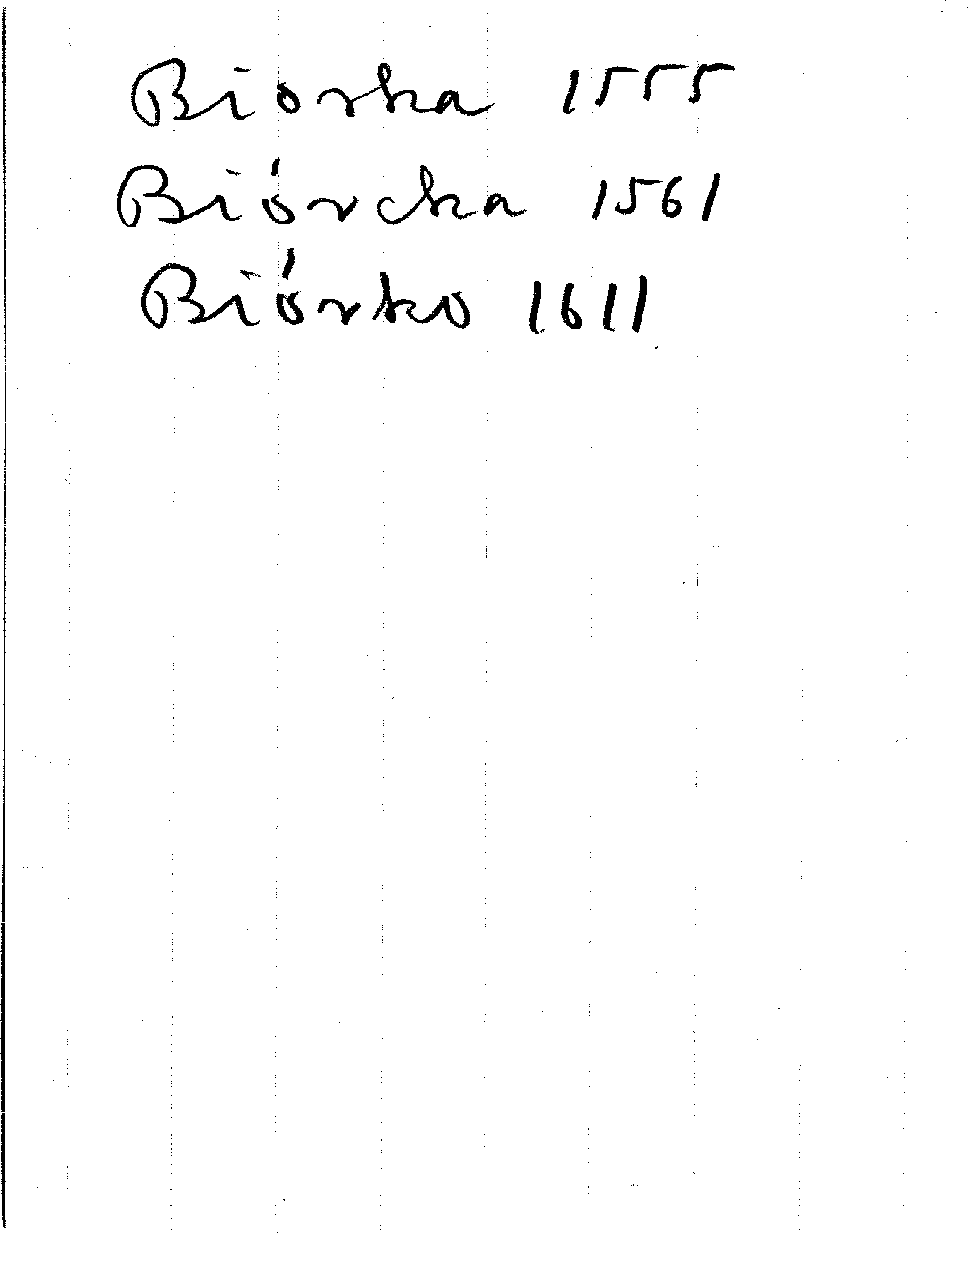 Biorka 1555
Biórcka 1561
Biórko 1611